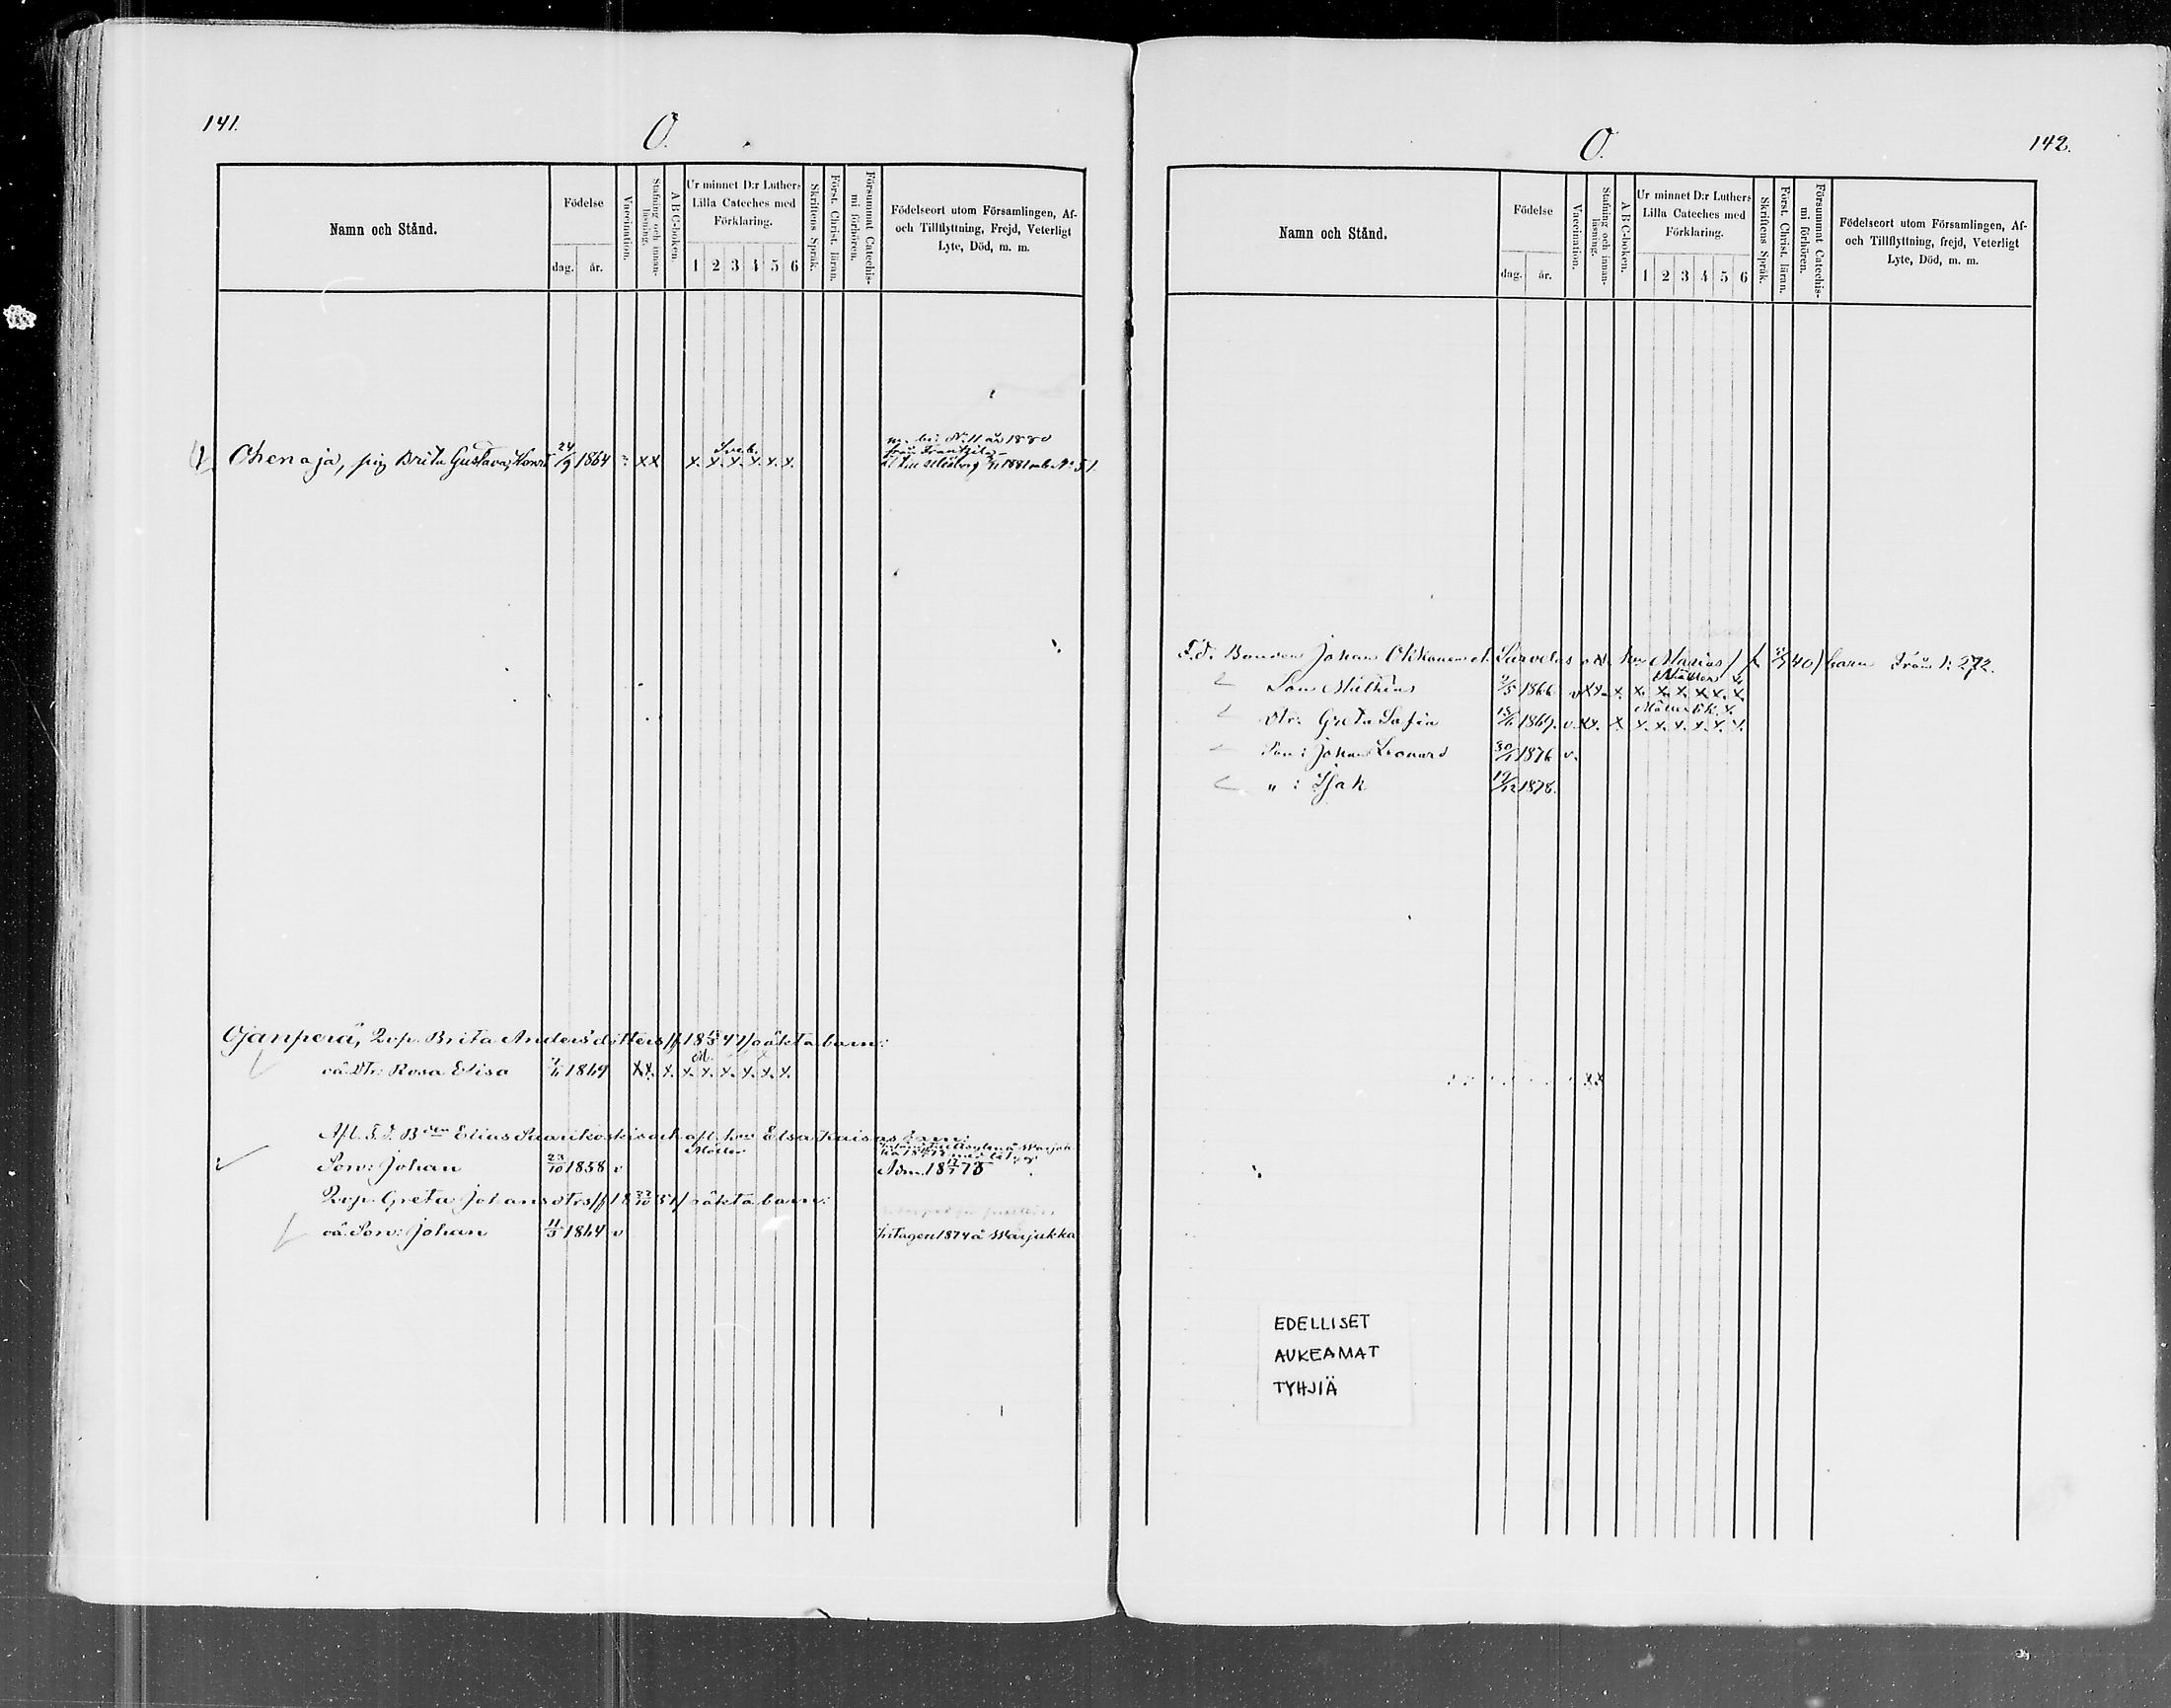 141.
O.
Namn och Stånd.
Födelse
dag.
år.
Vaccination.
Stafning och innan-
läsning.
A B C-boken.
Ur minnet D:r Luthers
Lilla Cateches med
Förklaring.
1 2 3 4 5 6
Skriftens Språk.
Först. Christ. läran.
Försummat Catechis-
mi förhören.
Födelseort utom Församlingen, Af-
och Tillflyttning, Frejd, Veterligt
Lyte, Död, m. m.
m. bi. N:11 år 1880
Sveb. från Frantzila
Ohenaja, pig Brita Gustava 24/9 1864 x x x. x. x. x. x. x. 1881 N:o 51.
Ojanperä, Qvp. Brita Andersdotters oäkta barn:
oä. Dtr: Rosa Elisa 1869 x x. x. x. x. x. x. x. x.
Afl. F.d. Bden Elias afl. hu Elsa Kaisas barn:
Möller
Son: Johan 23/10 1858 v Adm. 73
Qvp. Greta Johansdtrs oäkta barn:
oä. Son: Johan 11/5 1864 v Intagen 1874 å Warjukka
142.
O.
Namn och Stånd.
Födelse
dag.
år.
Vaccination.
Stafning och innan-
läsning.
A B C-boken.
Ur minnet D:r Luthers
Lilla Cateches med
Förklaring.
1 2 3 4 5 6
Skriftens Språk.
Först. Christ. läran.
Försummat Catechis-
mi förhören.
Födelseort utom Församlingen, Af-
och Tillflyttning, frejd, Veterligt
Lyte, Död, m. m.
F.d. Bonden Johan Okkonen 40) barn Från 1: 272.
Son Mathias 1866 v x x. x. x. x. x. x. x. x.
Dtr: Greta Sofia 1869. v. x x. x. x. x. x. x. x. x.
Son: Johan Leonard 1876 v.
" : Isak 19/12 1878.
x x
EDELLISET
AUKEAMAT
TYHJIÄ